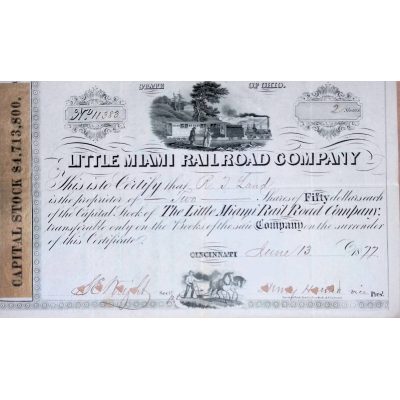 CAPITAL STOCK $4,713,800.
STATE OF OHIO.
No 11383
2 Shares
LITTLE MIAMI RAILROAD COMPANY
This is to Certify that R. T. Land
is the proprietor of Two Shares of Fifty dollars each
of the Capital Stock of The Little Miami Rail Road Company;
transferable only on the Books of the said Company, on the surrender
of this Certificate.
CINCINNATI June 13 1877
Wright Secy.
vice Pres.